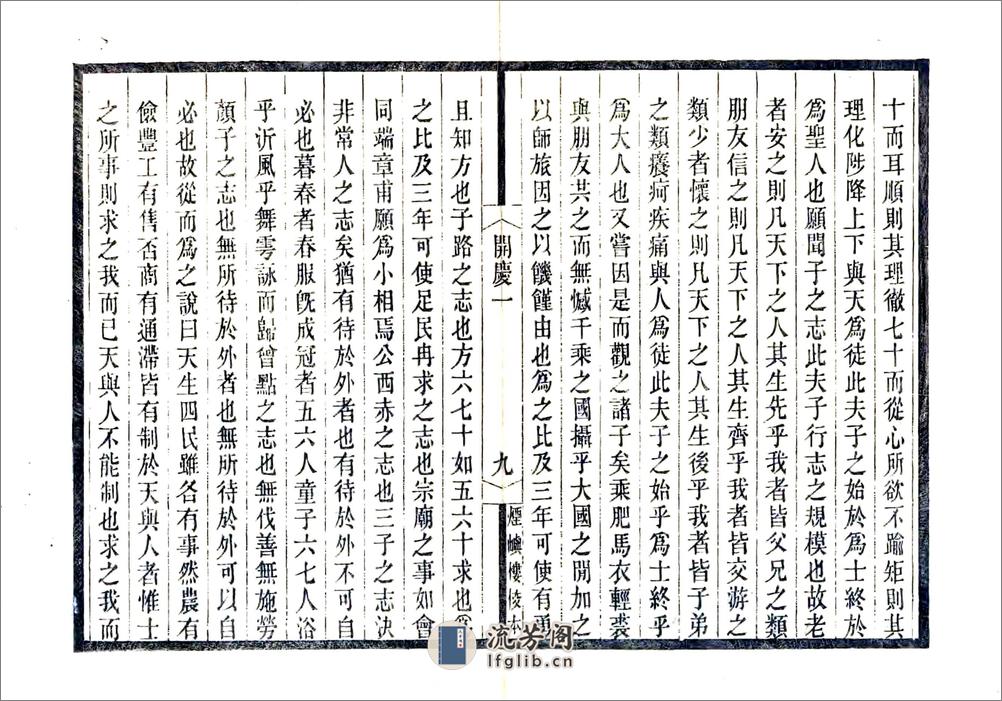 十而耳順則其理徹七十而從心所欲不踰矩則其
理化陟降上下與天爲徒此夫子之始於爲士終於
爲聖人也願聞子之志此夫子行志之規模也故老
者安之則凡天下之人其生先乎我者皆父兄之類
朋友信之則凡天下之人其生齊乎我者皆交游之
類少者懷之則凡天下之人其生後乎我者皆子弟
之類癢疴疾痛與人爲徒此夫子之始乎爲士終乎
爲大人也又嘗因是而觀之諸子矣乘肥馬衣輕裘
與朋友共之而無憾千乘之國攝乎大國之閒加之
以師旅因之以饑饉由也爲之比及三年可使有勇
開慶一
九
煙嶼樓校本
且知方也子路之志也方六七十如五六十求也爲
之比及三年可使足民冉求之志也宗廟之事如會
同端章甫願爲小相焉公西赤之志也三子之志決
非常人之志矣猶有待於外者也有待於外不可自
必也暮春者春服旣成冠者五六人童子六七人浴
乎沂風乎舞雩詠而歸曾點之志也無伐善無施勞
顏子之志也無所待於外者也無所待於外可以自
必也故從而爲之說曰天生四民雖各有事然農有
儉豐工有售否商有通滯皆有制於天與人者惟士
之所事則求之我而已天與人不能制也求之我而
流芳阁
lfglib.cn